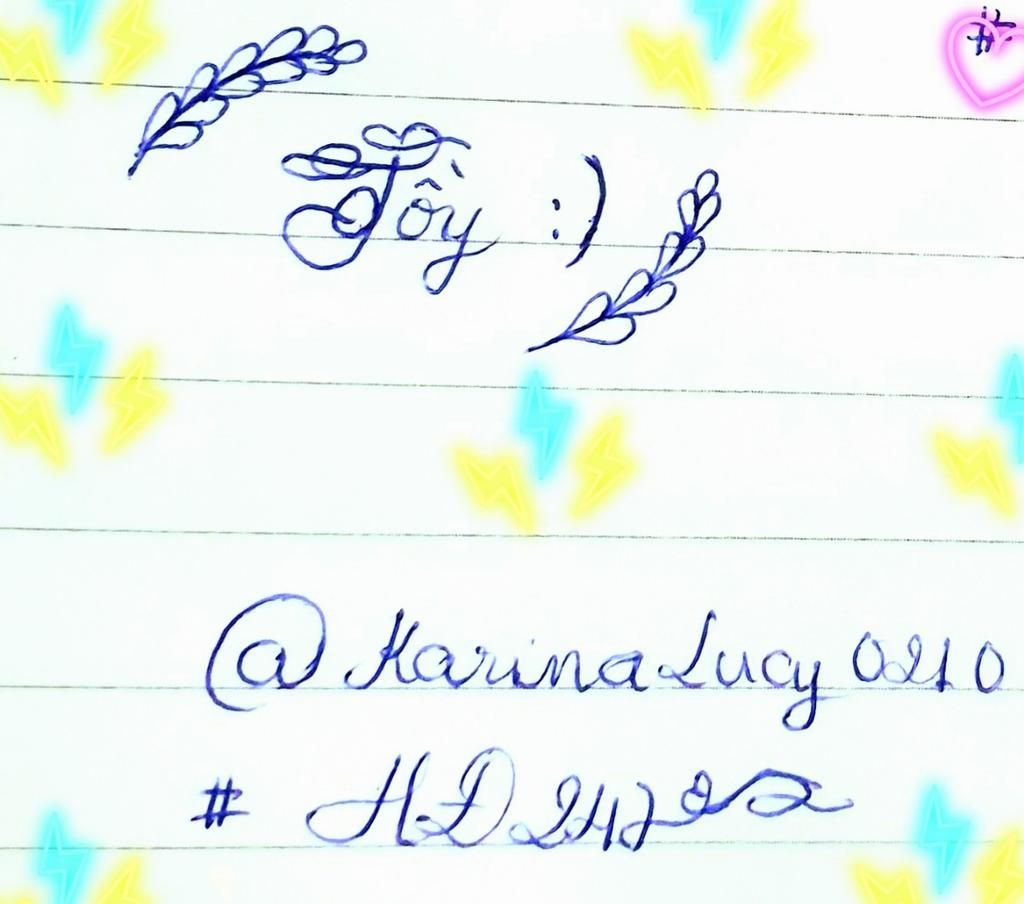 #
Tồy :)
@KarinaLucy0210
#HĐ247